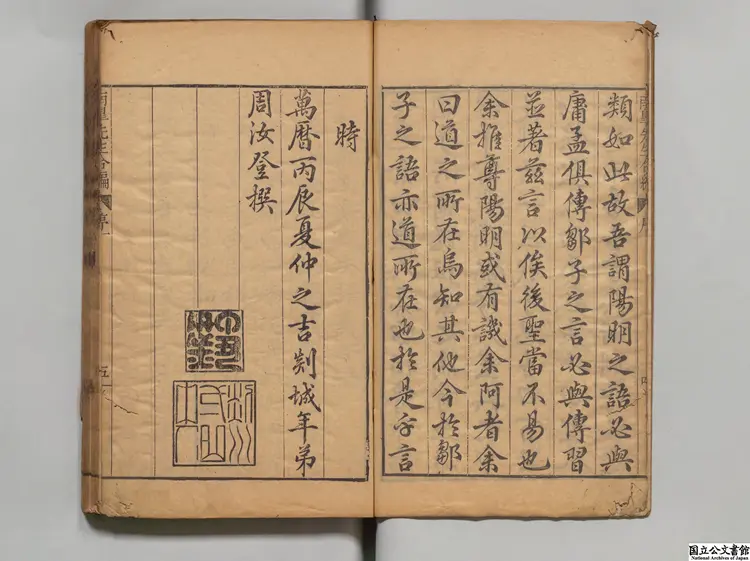 類如此故吾謂陽明之語必與
庸孟俱傳鄒子之言必與傳習
並著茲言以俟後聖當不易也
余推尊陽明或有譏余阿者余
曰道之所在烏知其他今於鄒
子之語亦道所在也於是乎言
時
萬曆丙辰夏仲之吉剡城年弟
周汝登撰
南皐先生合編 序 五
国立公文書館
National Archives of Japan